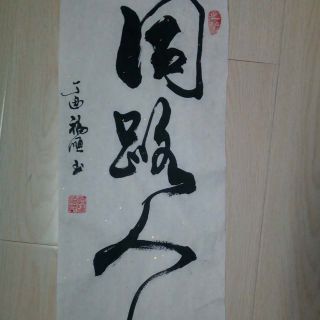 同路人
丁酉福顺书